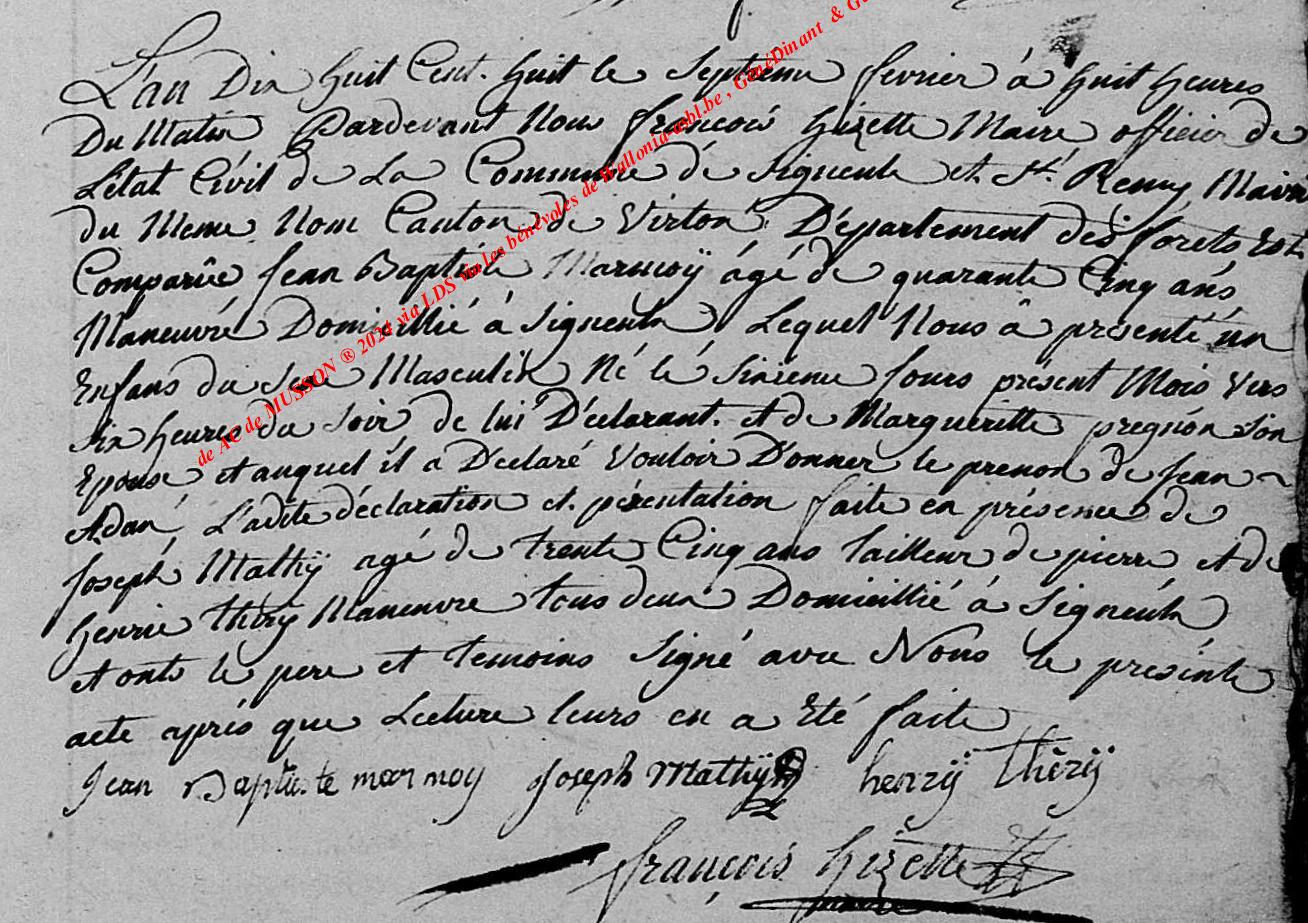 L'an Dix huit Cent. huit le Septieme fevrier à huit heures
Du Matin Pardevant Nous françois hizette Maire officier de
L'état Civil de La Commune de Signeulx et St. Remy Mairie
du Meme Nom Canton de Virton Département des forets Est
Comparûe Jean Baptiste Marmoÿ âgé de quarante Cinq ans
Maneuvre Domicillié à Signeulx Lequel Nous â présenté un
Enfans du sexe Masculin Né le Sixieme Jours présent Mois Vers
six heures du soir de lui Déclarant. et de Margueritte pregnon son
Epouse et auquel il a Déclaré Vouloir Donner le prenon de Jean
Adan, L'adite déclaration et présentation faite en présence de
Joseph Mathÿ agé de trente Cinq ans Tailleur de pierre et de
henrie thirÿ Maneuvre tous deux Domicillié à Signeulx
et onts le pere et temoins Signé avec Nous le présente
acte après que Lecture leurs en a Eté faite
Jean Baptis.te marmoy Joseph Mathÿ henrÿ thierÿ
françois hizette
maire
de AC de MUSSON ® 2024 via LDS via les bénévoles de Wallonia-asbl.be , GénéDinant & G